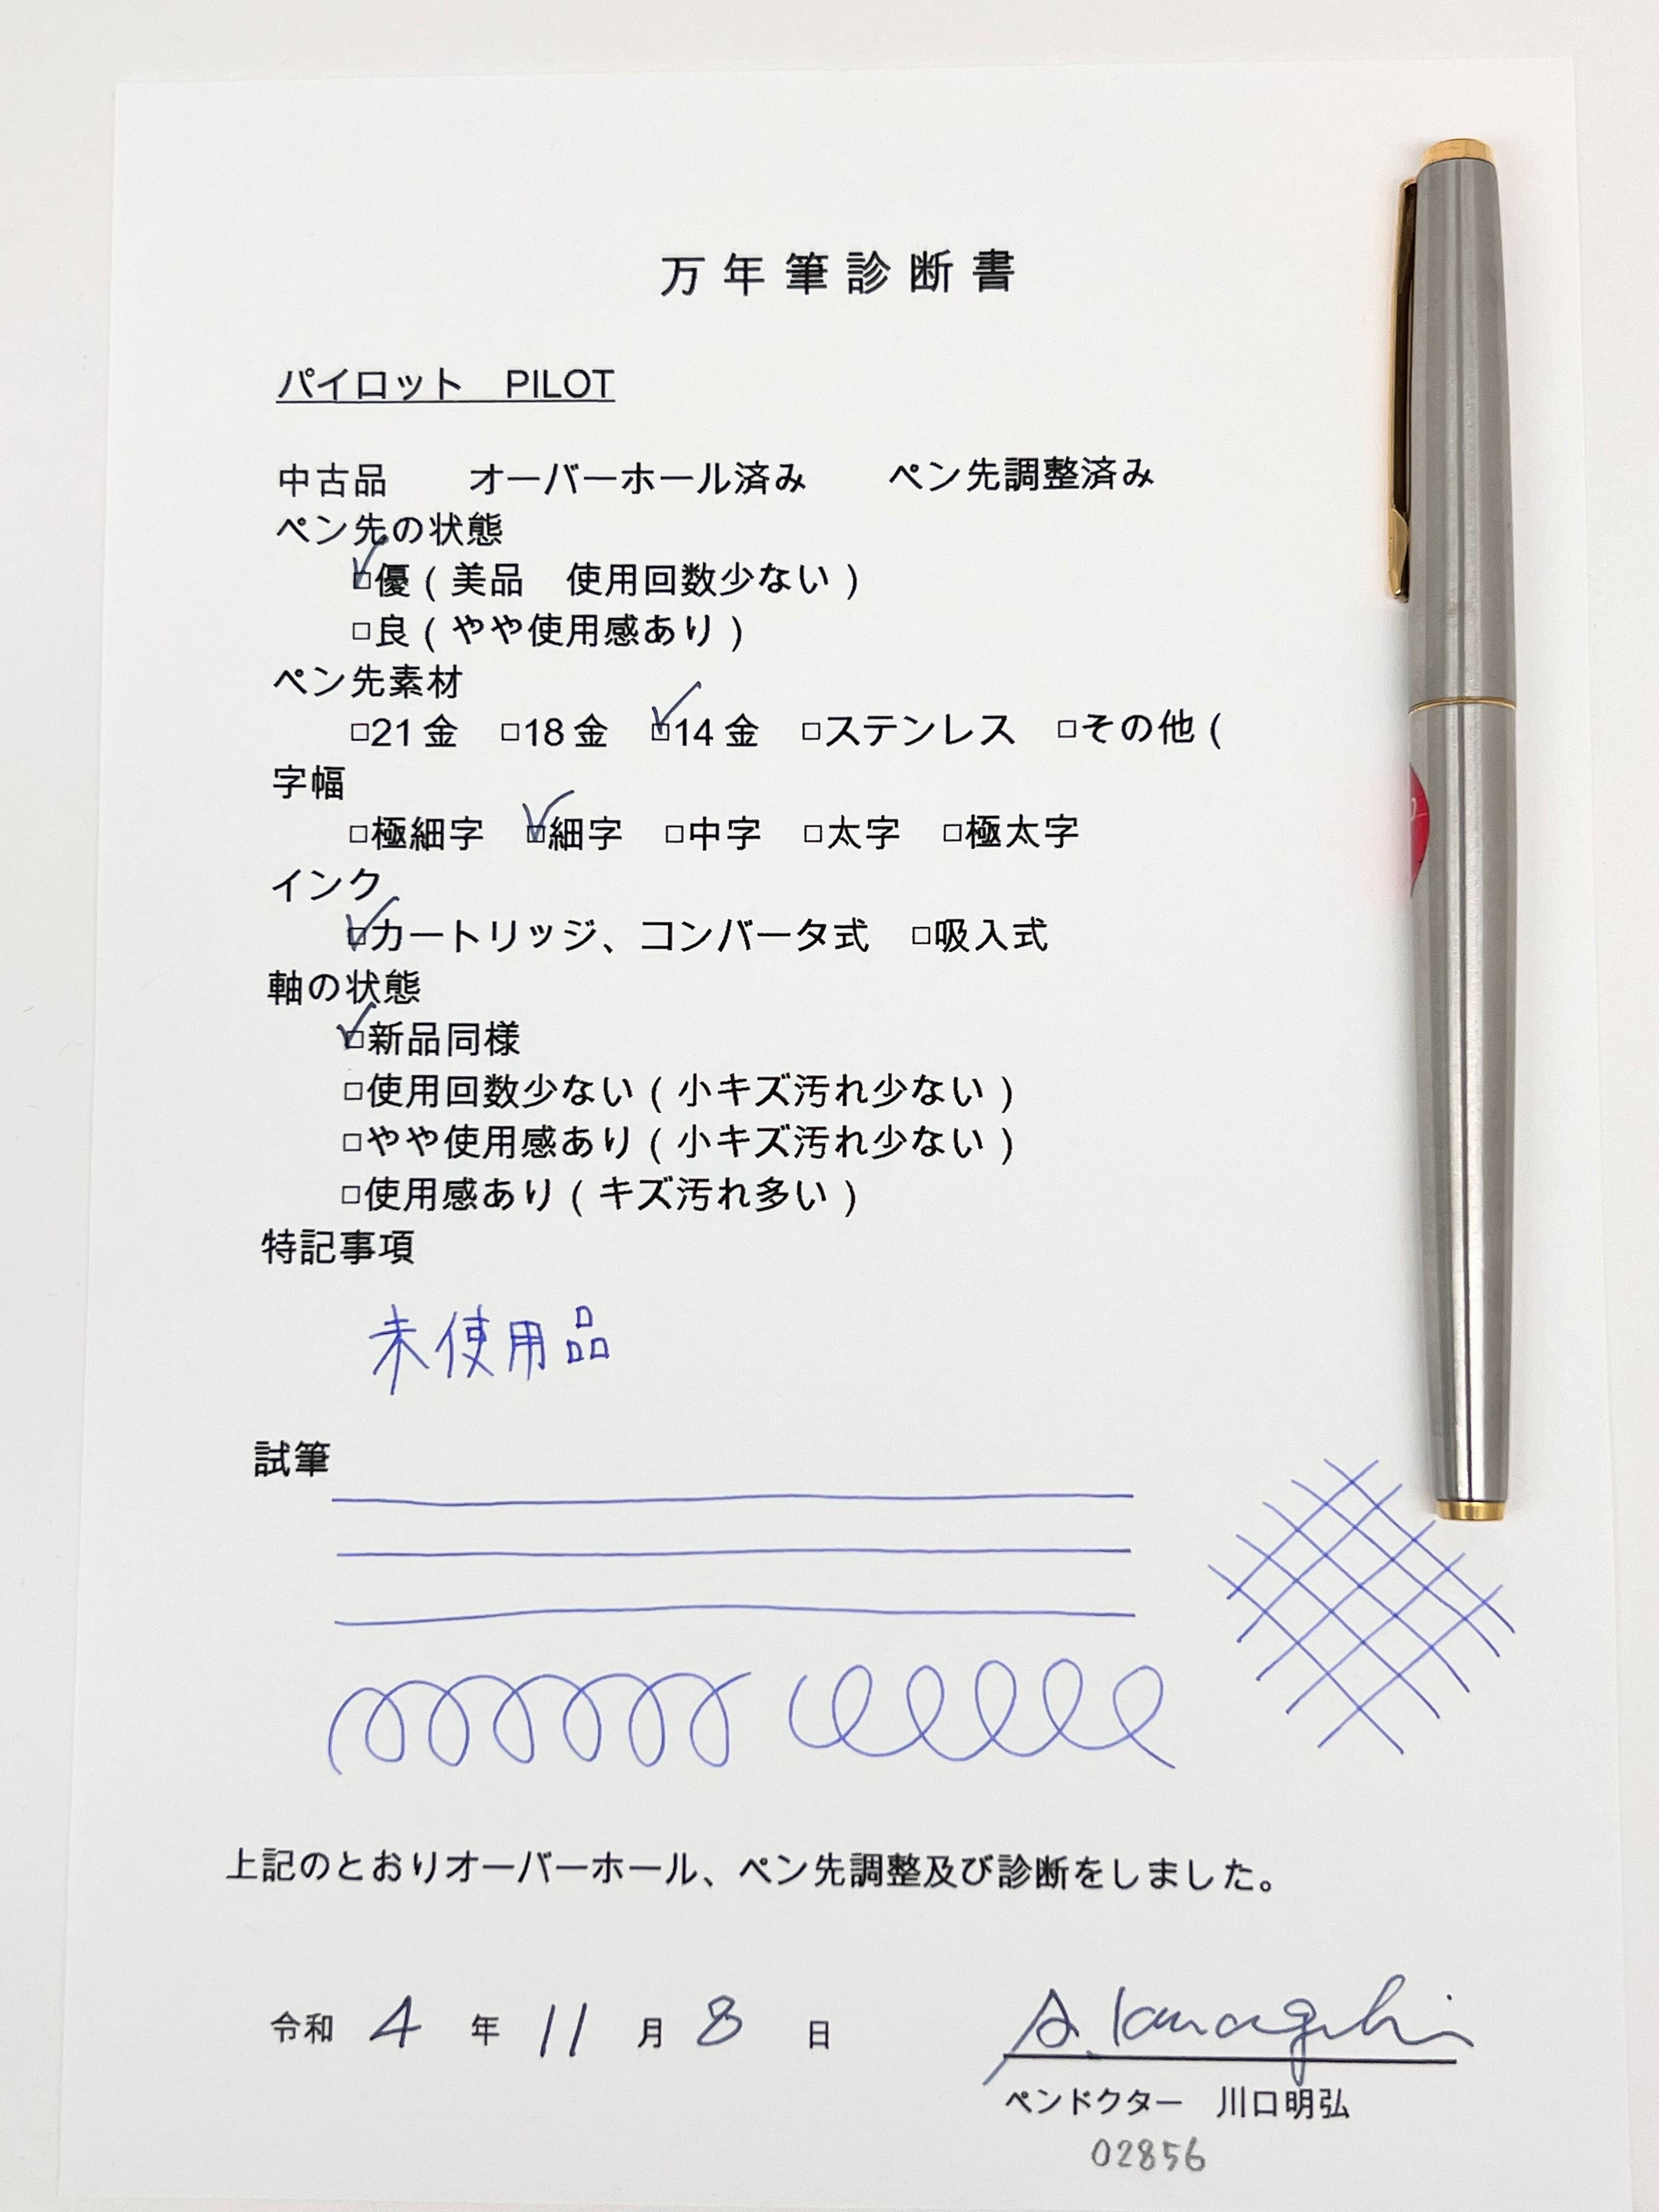 万年筆診断書
パイロット　PILOT
中古品　　オーバーホール済み　　ペン先調整済み
ペン先の状態
□優（美品　使用回数少ない）
□良（やや使用感あり）
ペン先素材
□21金　□18金　□14金　□ステンレス　□その他（
字幅
□極細字　□細字　□中字　□太字　□極太字
インク
□カートリッジ、コンバータ式　□吸入式
軸の状態
□新品同様
□使用回数少ない（小キズ汚れ少ない）
□やや使用感あり（小キズ汚れ少ない）
□使用感あり（キズ汚れ多い）
特記事項
未使用品
試筆
上記のとおりオーバーホール、ペン先調整及び診断をしました。
令和 4 年 11 月 8 日
A. Kawaguchi
ペンドクター　川口明弘
02856